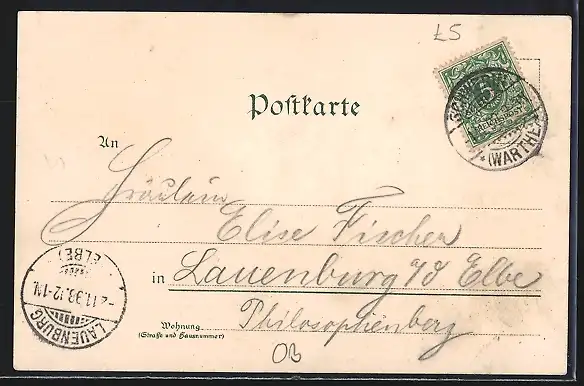 £5
5
REICHSPOST
(WARTHE)
Postkarte
An
Fräulein
Elise Fischer
in Lauenburg a/d Elbe
Wohnung
(Straße und Hausnummer)
Philosophenberg
LAUENBURG
(ELBE)
OB